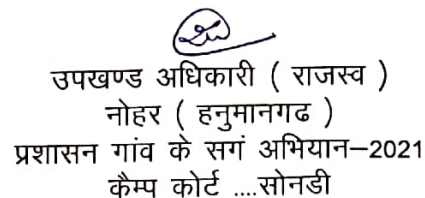 उपखण्ड अधिकारी ( राजस्व )
नोहर ( हनुमानगढ )
प्रशासन गांव के सगं अभियान–2021
कैम्प कोर्ट ....सोनडी